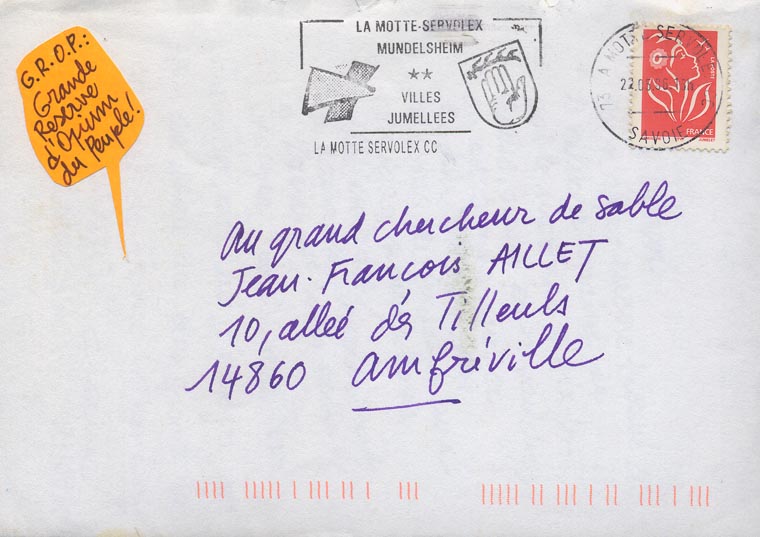 G.R.O.P.:
Grande
Réserve
d'Opium
du Peuple!
LA MOTTE-SERVOLEX
MUNDELSHEIM
★★
VILLES
JUMELLEES
LA MOTTE SERVOLEX CC
SAVOIE
LA POSTE
FRANCE
Au grand chercheur de sable
Jean-François AILLET
10, allée des Tilleuls
14860 Amfréville